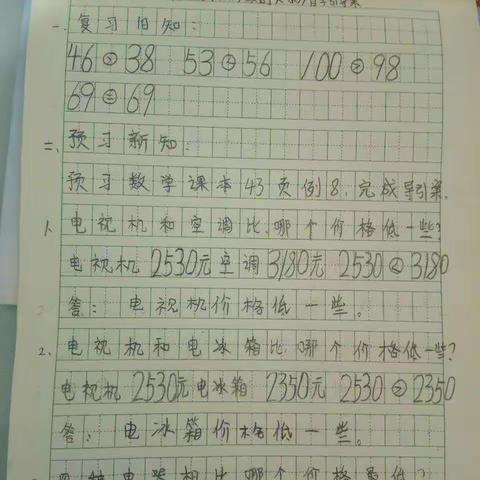 一、复习旧知：
46 > 38 53 < 56 100 > 98
69 = 69
二、预习新知：
预习数学课本43页例8，完成导引案.
1. 电视机和空调比，哪个价格低一些？
电视机 2530元 空调 3180元 2530 < 3180
答：电视机价格低一些。
2. 电视机和电冰箱比，哪个价格低一些？
电视机 2530元 电冰箱 2350元 2530 > 2350
答：电冰箱价格低一些。
电器相比哪个价格最低？